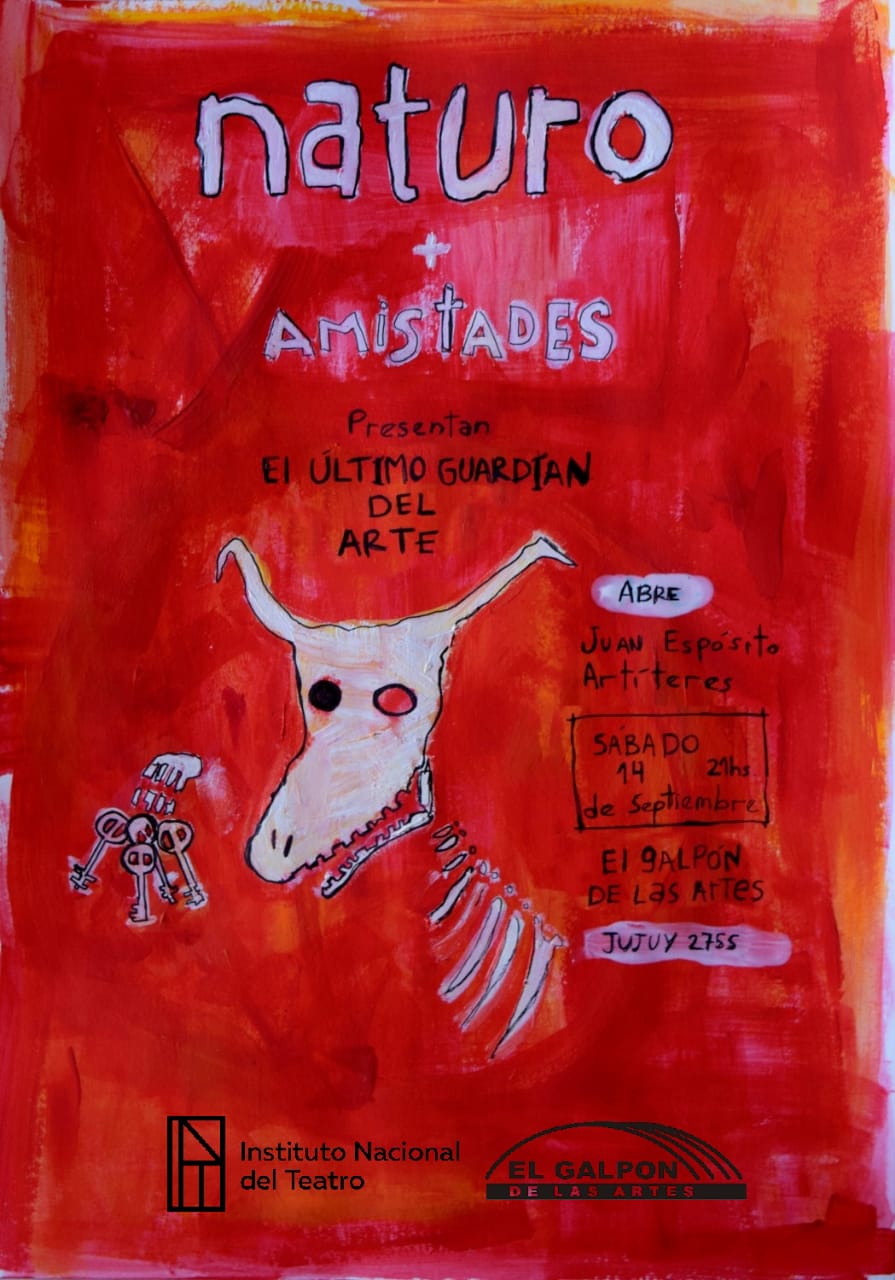 naturo
+
AMiStADES
Presentan
El ÚLTIMO GUARDÍAN
DEL
ARTE
ABRE
JUAN Espósito
Artíteres
SÁBADO
14 21hs.
de Septiembre
El gALPÓN
DE Las ARtes
JUJUY 2755
Instituto Nacional
del Teatro
EL GALPON
DE LAS ARTES